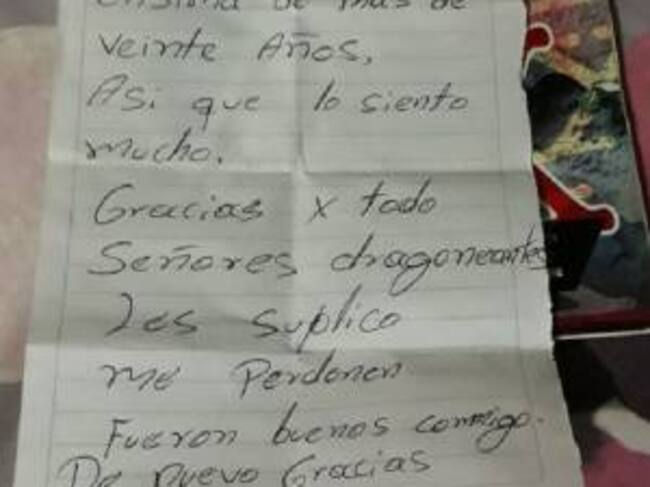 de mas de
veinte Años,
Asi que lo siento
mucho.
Gracias x todo
Señores dragoneantes
Les suplico
me Perdonen
Fueron buenos conmigo.
De nuevo Gracias